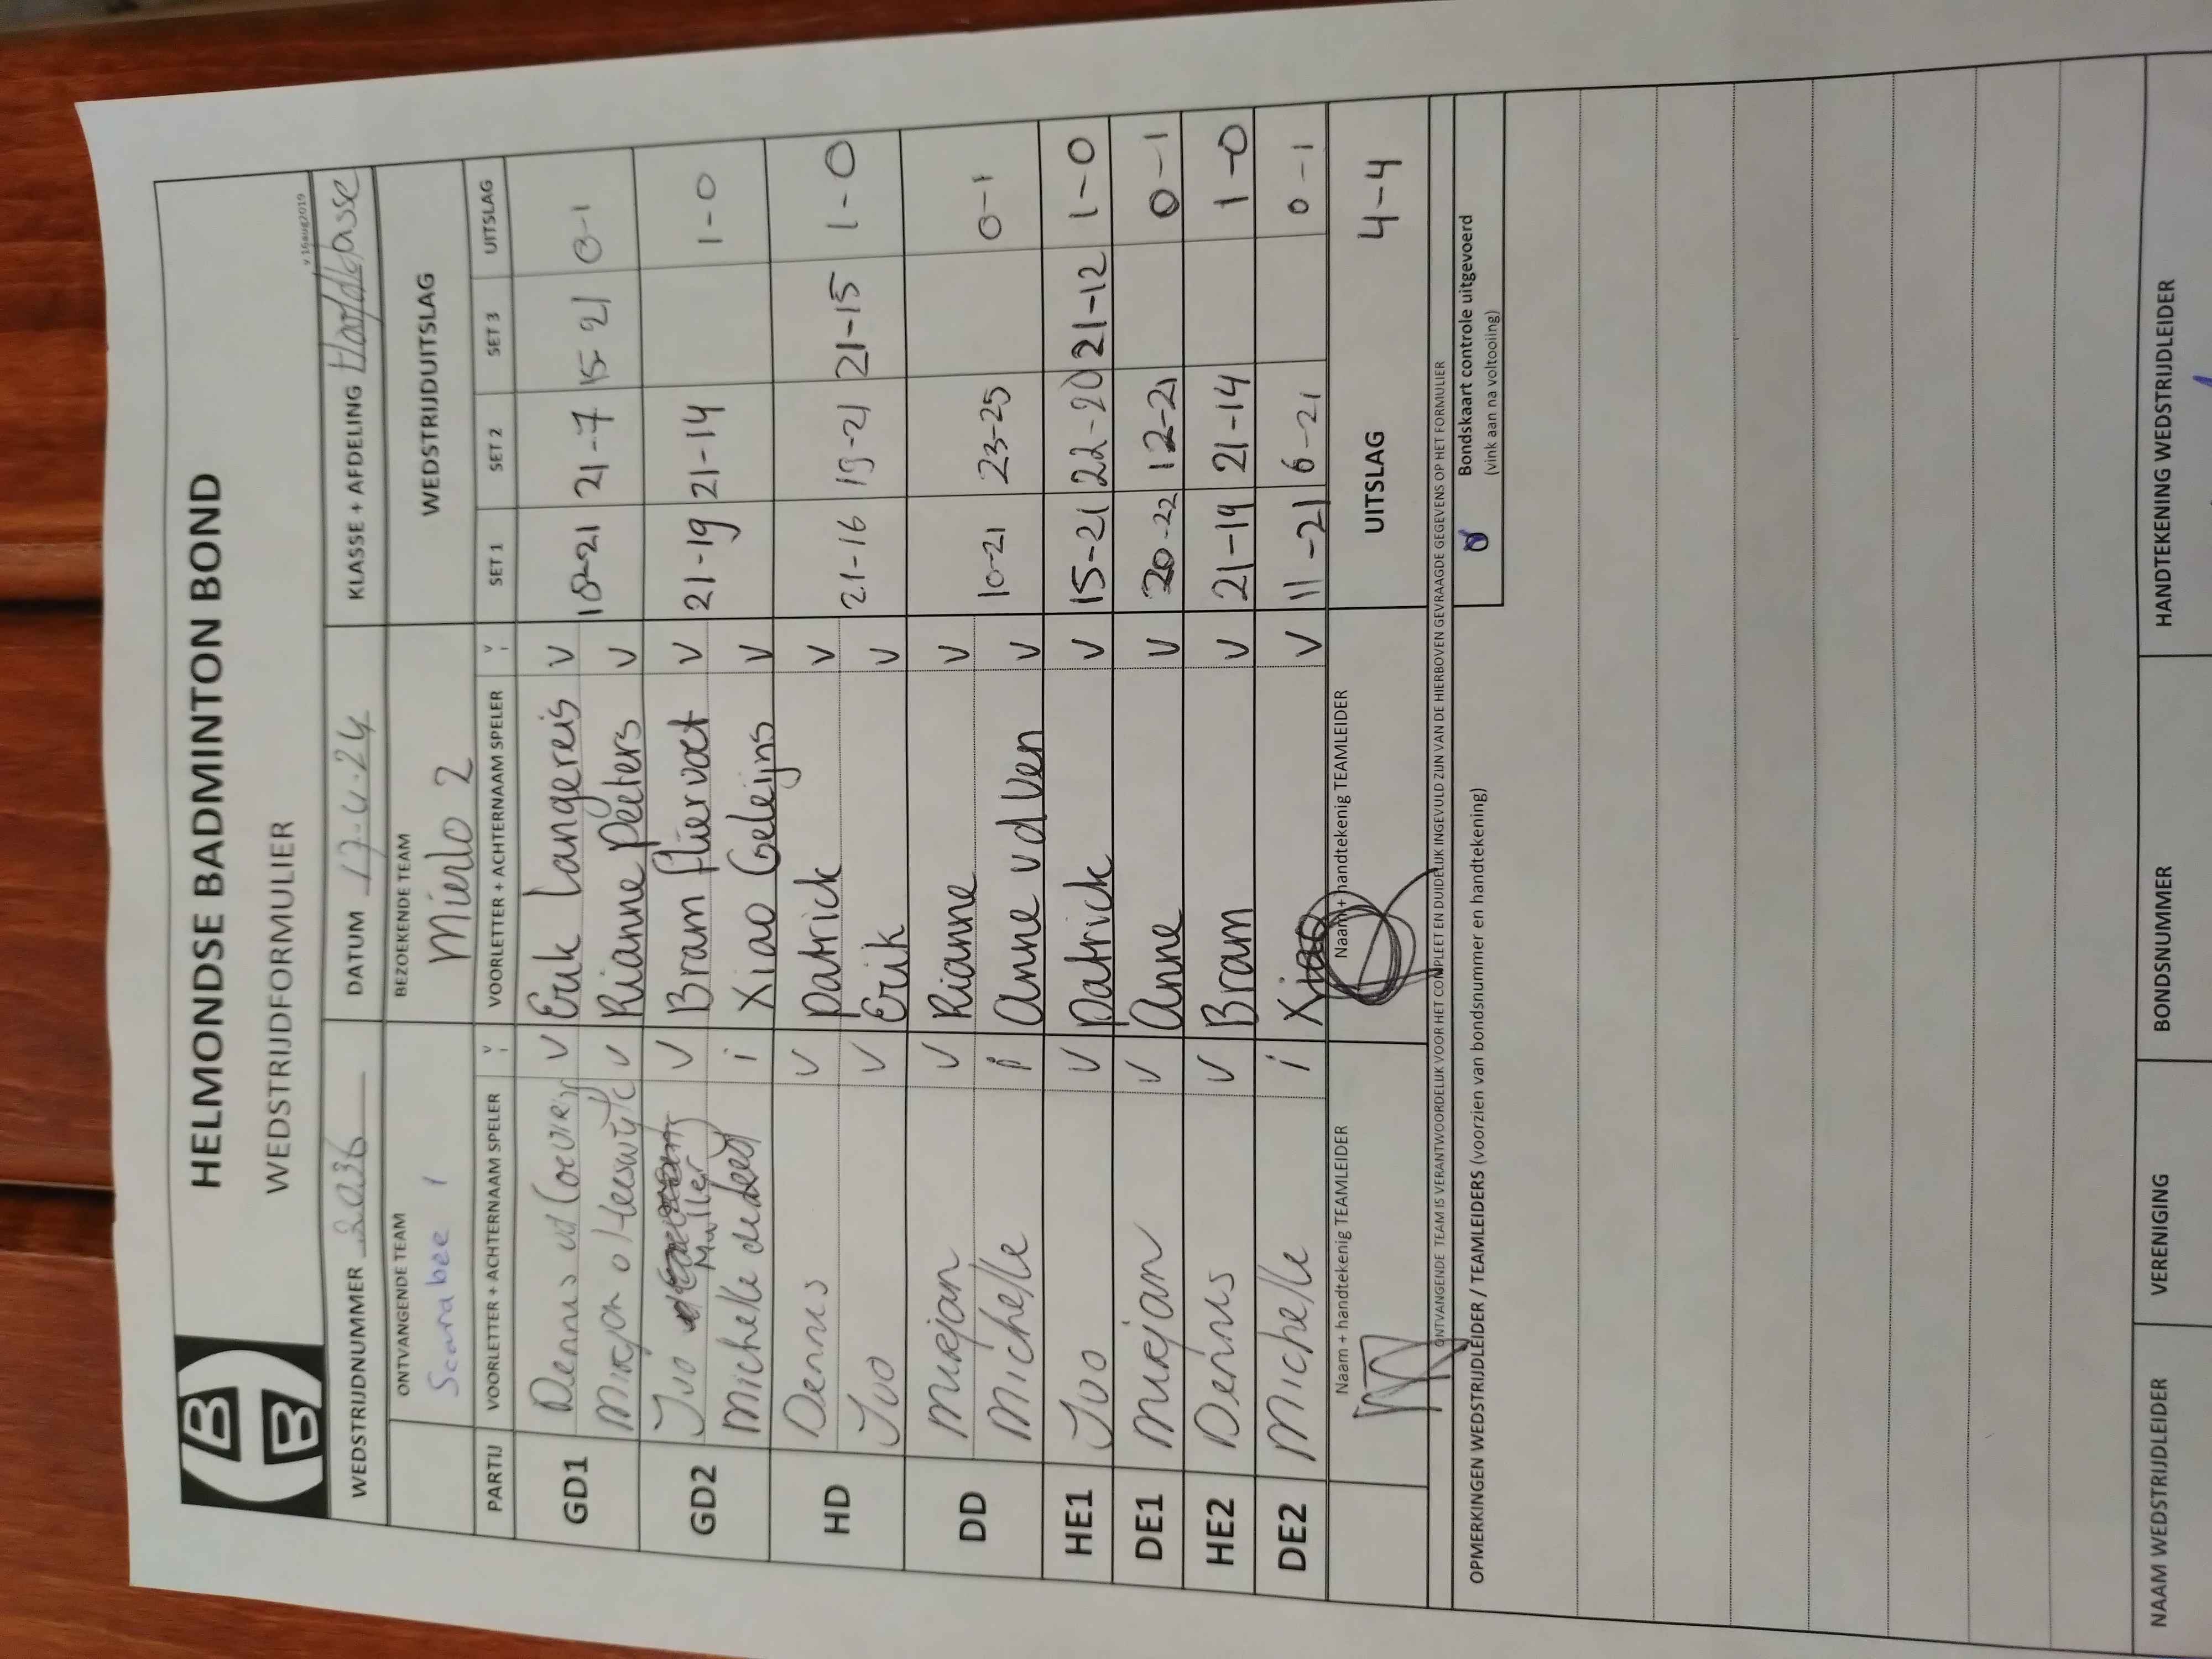 HELMONDSE BADMINTON BOND
WEDSTRIJDFORMULIER
v.16aug2019
WEDSTRIJDNUMMER DATUM 17-4-24 KLASSE + AFDELING Hoofdklasse
ONTVANGENDE TEAM BEZOEKENDE TEAM WEDSTRIJDUITSLAG
Scarabee 1 Mierlo 2
PARTIJ VOORLETTER + ACHTERNAAM SPELER V i VOORLETTER + ACHTERNAAM SPELER V i SET 1 SET 2 SET 3 UITSLAG
GD1 Dennis vd V Erik Langereis V 18-21 21-7 15-21 0-1
Mirjan V Rianne Peeters V
GD2 Ivo Muller V Bram Fliervoet V 21-19 21-14 1-0
Michelle i Xiao Geleijns V
HD Dennis V Patrick V 21-16 19-21 21-15 1-0
Ivo V Erik V
DD Mirjan V Rianne V 10-21 23-25 0-1
Michelle i Anne vd Ven V
HE1 Ivo V Patrick V 15-21 22-20 21-12 1-0
DE1 Mirjan V Anne V 20-22 12-21 0-1
HE2 Dennis V Bram V 21-19 21-14 1-0
DE2 Michelle i Xiao V 11-21 6-21 0-1
Naam + handtekenig TEAMLEIDER Naam + handtekenig TEAMLEIDER UITSLAG 4-4
ONTVANGENDE TEAM IS VERANTWOORDELIJK VOOR HET COMPLEET EN DUIDELIJK INGEVULD ZIJN VAN DE HIERBOVEN GEVRAAGDE GEGEVENS OP HET FORMULIER
OPMERKINGEN WEDSTRIJDLEIDER / TEAMLEIDERS (voorzien van bondsnummer en handtekening)
Bondskaart controle uitgevoerd
(vink aan na voltooiing)
NAAM WEDSTRIJDLEIDER VERENIGING BONDSNUMMER HANDTEKENING WEDSTRIJDLEIDER